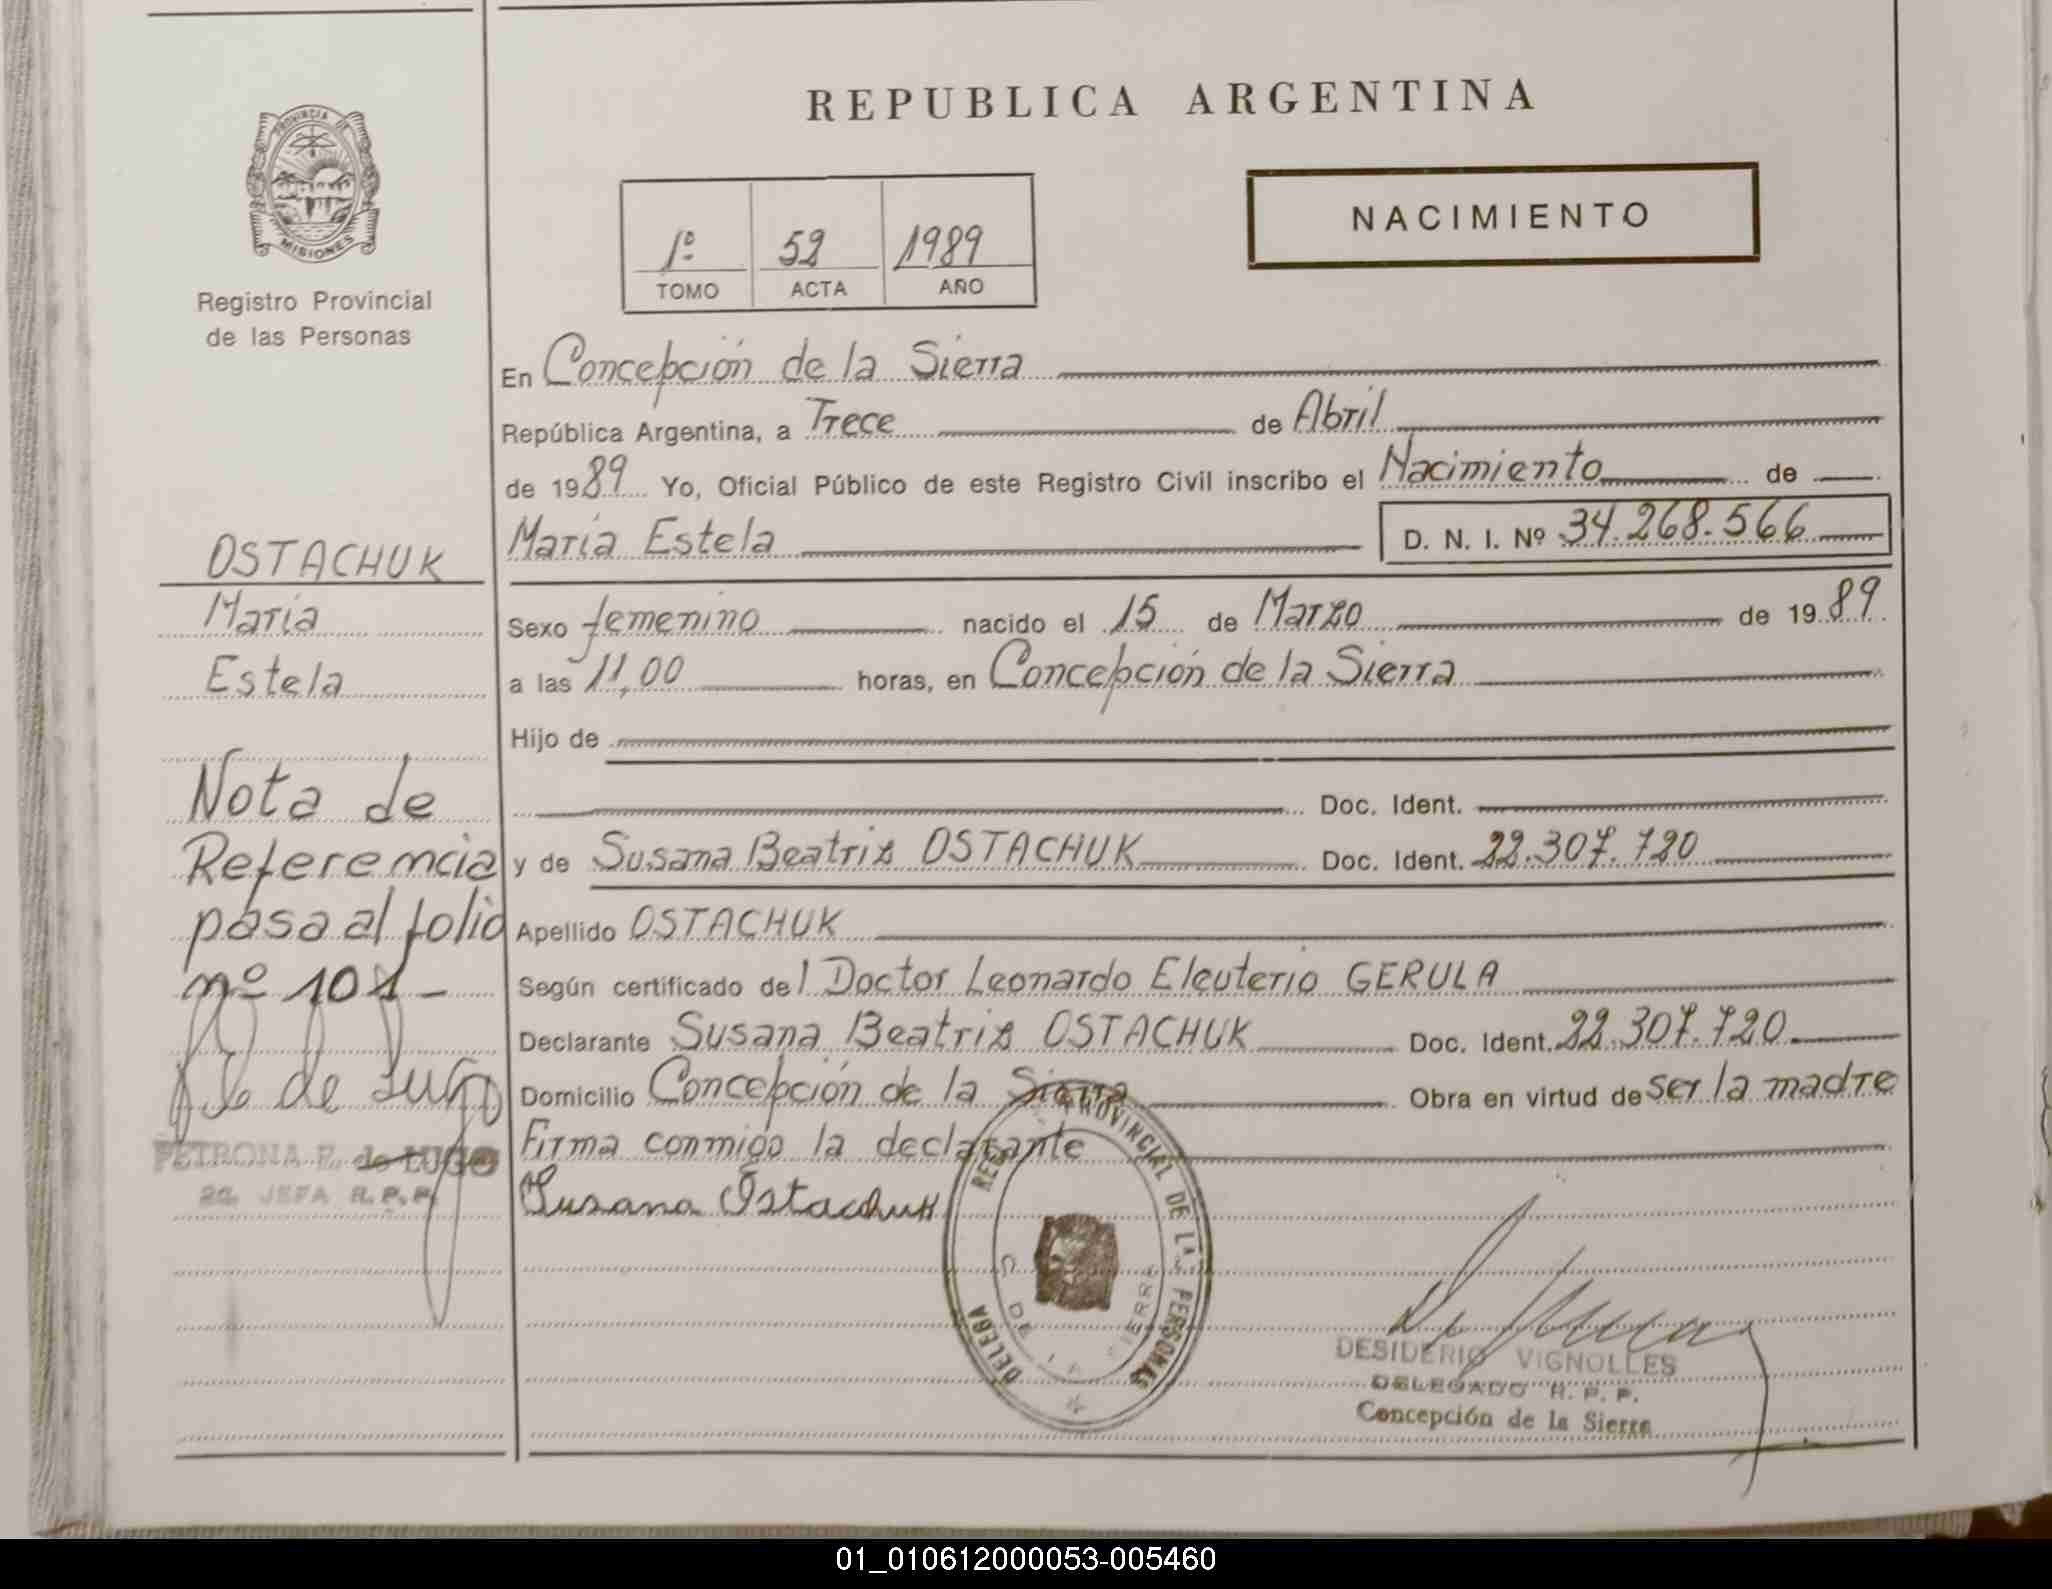 REPUBLICA ARGENTINA
PROVINCIA DE
MISIONES
Registro Provincial
de las Personas
1º 52 1989
TOMO ACTA AÑO
NACIMIENTO
En Concepción de la Sierra
República Argentina, a Trece de Abril
de 1989 Yo, Oficial Público de este Registro Civil inscribo el Nacimiento de
María Estela D. N. I. Nº 34.268.566
OSTACHUK
María
Estela
Sexo femenino nacido el 15 de Marzo de 1989
a las 11,00 horas, en Concepción de la Sierra
Hijo de
Doc. Ident.
y de Susana Beatriz OSTACHUK Doc. Ident. 22.307.720
Apellido OSTACHUK
Según certificado del Doctor Leonardo Eleuterio GERULA
Declarante Susana Beatriz OSTACHUK Doc. Ident. 22.307.720
Domicilio Concepción de la Sierra Obra en virtud de ser la madre
Firma conmigo la declarante
Susana Ostachuk
Nota de
Referencia
pasa al folio
nº 101-
de Lugo
PETRONA R. de LUGO
2a. JEFA R.P.P.
PROVINCIAL DE LAS PERSONAS
DESIDERIO VIGNOLLES
DELEGADO R. P. P.
Concepción de la Sierra
01_010612000053-005460